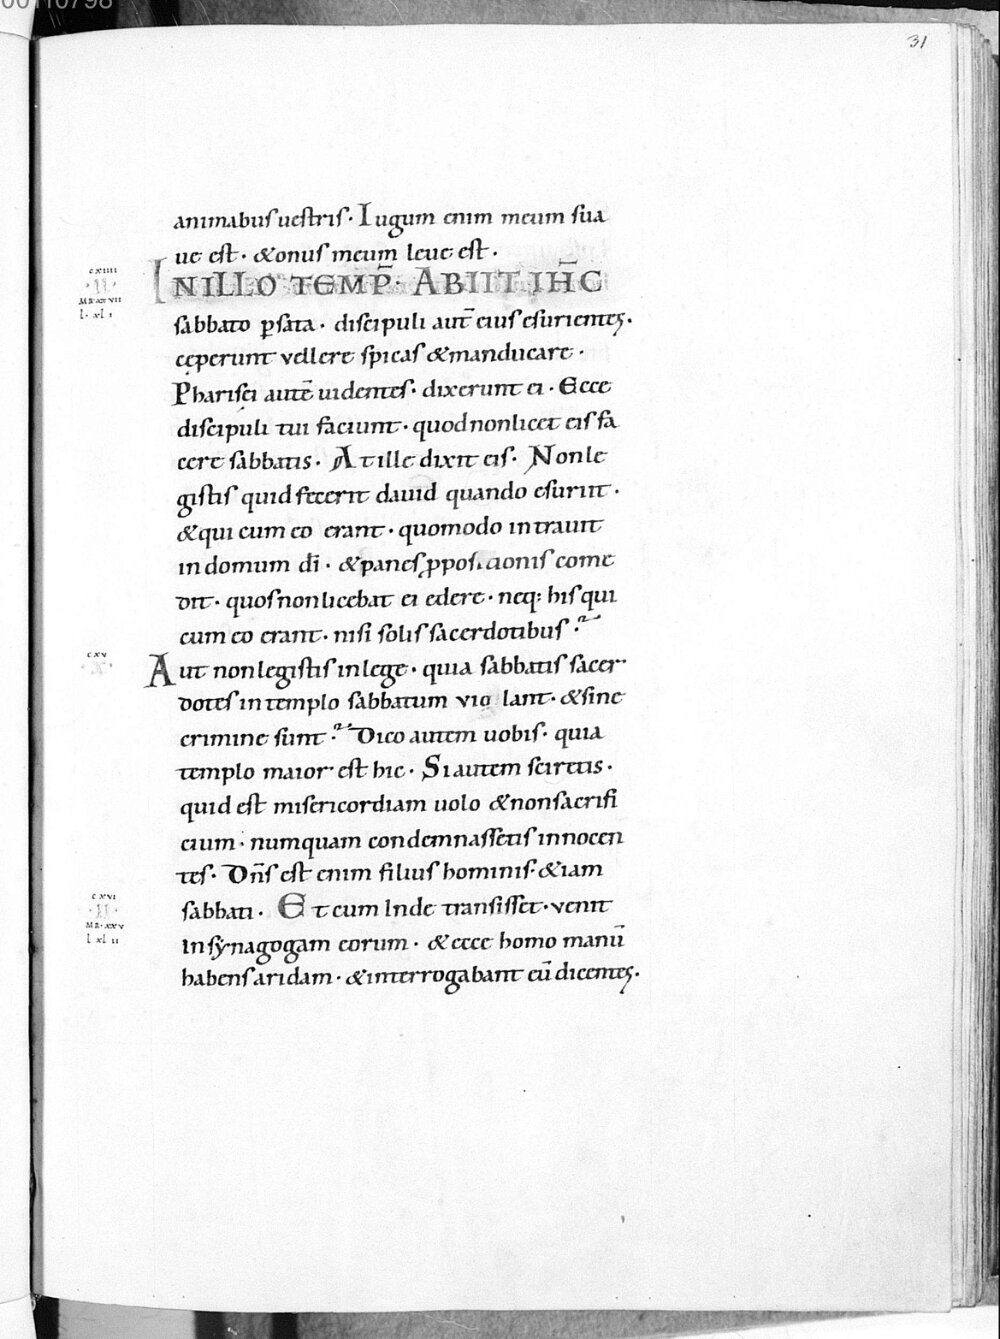 00110798
31
animabus uestris · Iugum enim meum sua
ue est · & onus meum leue est ·
IN ILLO TEMP̄ · ABIIT IH̄C
cxiiii
II
MR xxvii
sabbato ꝑ sata · discipuli aut̄ eius esurientes ·
ceperunt vellere spicas & manducare ·
Pharisęi autē uidentes · dixerunt ei · Ecce
discipuli tui faciunt · quod non licet eis fa
cere sabbatis · At ille dixit eis · Non le
gistis quid fecerit dauid quando esuriit ·
& qui cum eo erant · quomodo intrauit
in domum dī · & panes ꝓpositionis come
dit · quos non licebat ei edere · neq: his qui
cum eo erant · nisi solis sacerdotibus ·
cxv
x
Aut non legistis in lege · quia sabbatis sacer
dotes in templo sabbatum violant · & sine
crimine sunt · Dico autem uobis · quia
templo maior est hic · Si autem sciretis ·
quid est misericordiam uolo & non sacrifi
cium · numquam condemnassetis innocen
tes · Dn̄s est enim filius hominis · & iam
cxvi
II
MR · xxv
l xl ii
sabbati · Et cum Inde transisset · venit
in synagogam eorum · & ecce homo manū
habens aridam · & interrogabant eū dicentes ·